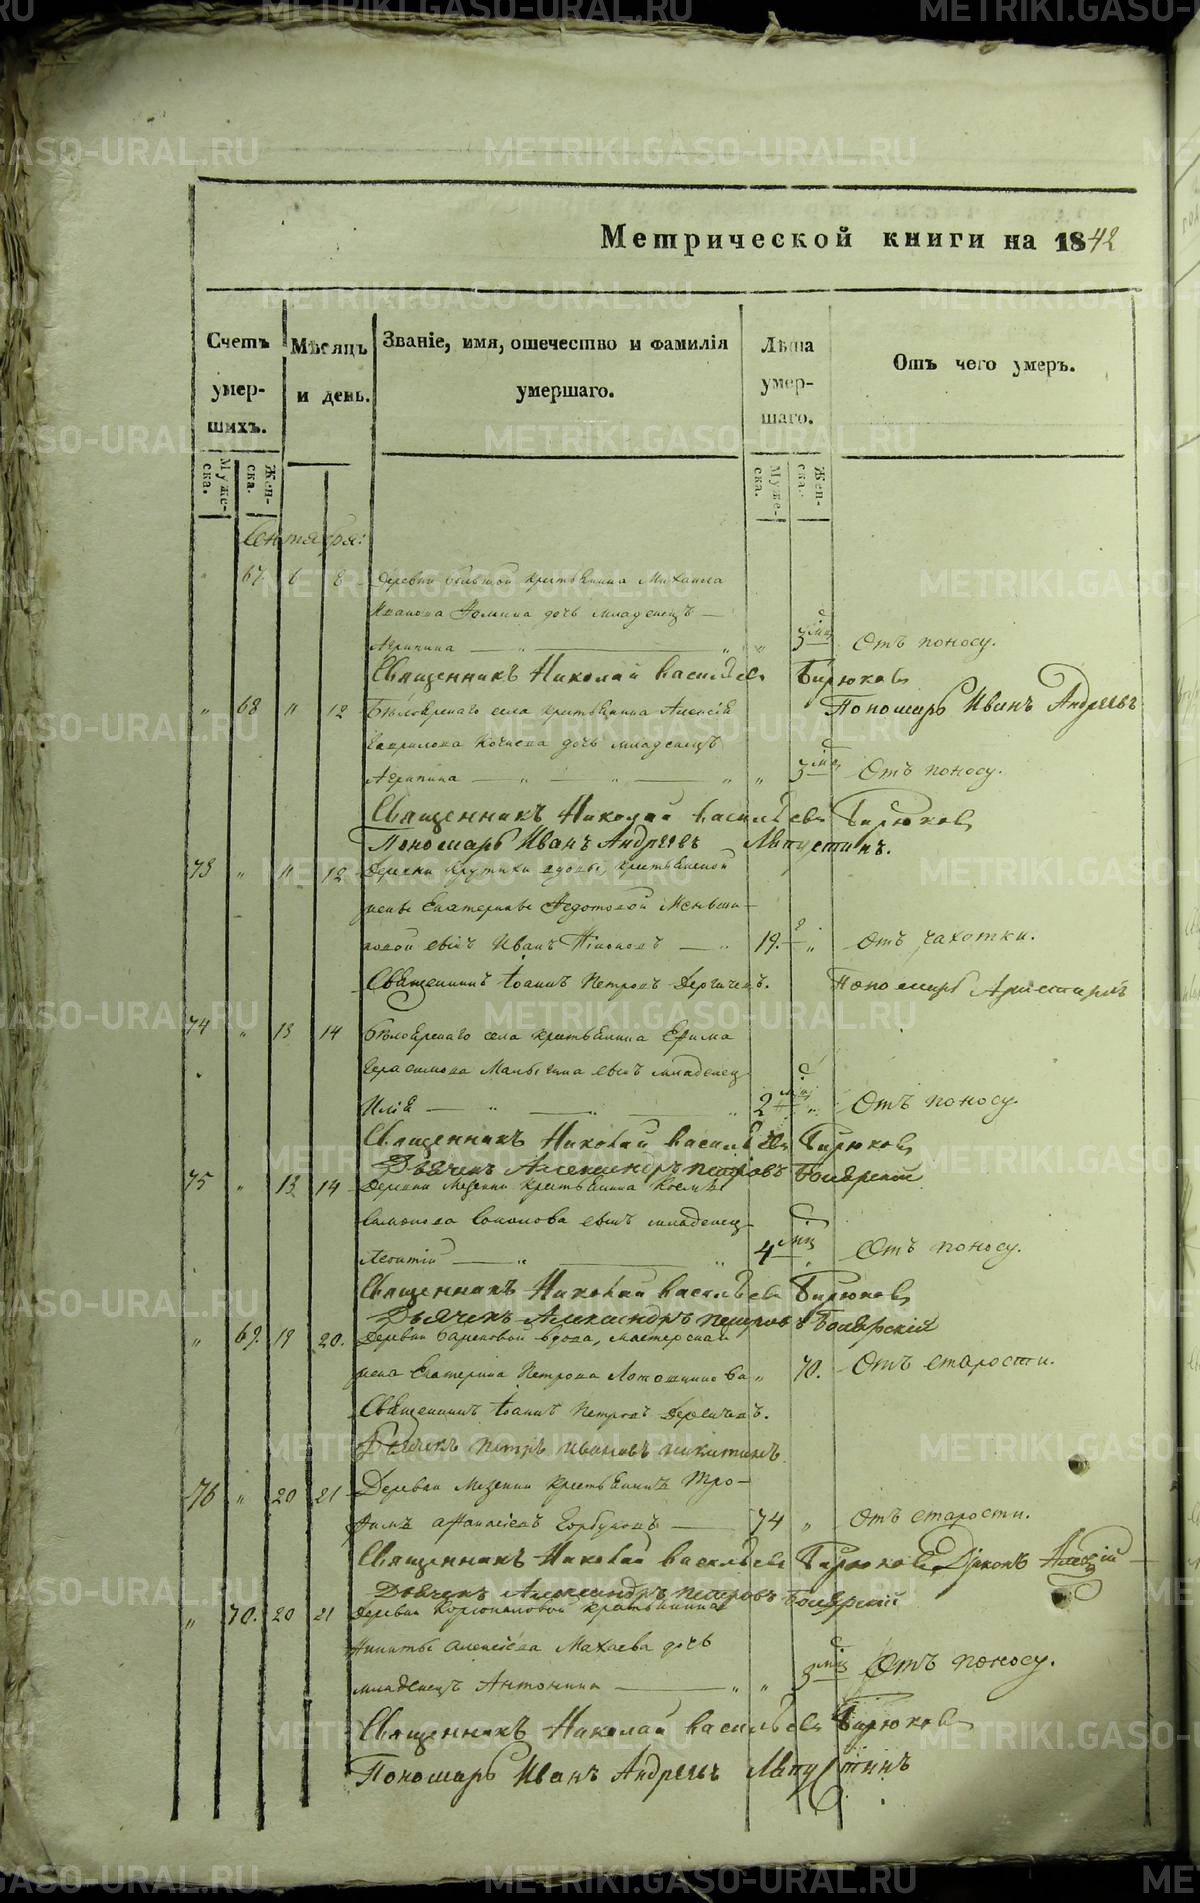 METRIKI.GASO-URAL.RU
Метрической книги на 1842
Счетъ умер-шихъ.
Муже-ска.
Жен-ска.
Мѣсяцъ и день.
Званіе, имя, отечество и фамилія умершаго.
Лѣта умер-шаго.
Муже-ска.
Жен-ска.
Отъ чего умеръ.
Сентября:
„ 67. 6 8 Деревни Большой крестьянина Михаила
Иванова дочь младенецъ —
„ „ 3 мца Отъ поносу.
Священникъ Николай Васильевъ Бирюковъ
Пономарь Иванъ Андреевъ
„ 68 „ 12 Бѣлоярскаго села крестьянина Алексѣя
Гаврилова дочь младенецъ
Агрипина — „ — „ — „ „ 3 мца Отъ поносу.
Священникъ Николай Васильевъ Бирюковъ
Пономарь Иванъ Андреевъ
73 „ 11 12 Деревни Крутихи вдовы, крестьянской
жены Екатерины Федотовой Меньши-
ковой сынъ Иванъ — „ 19. „ Отъ чахотки.
Священникъ Іоаннъ Петровъ
Пономарь
74 „ 13 14 Бѣлоярскаго села крестьянина Ефима
Герасимова Малыгина сынъ младенец
Илія — „ — „ — „ 2 мца „ Отъ поносу.
Священникъ Николай Васильевъ Бирюковъ
Дьячекъ Александръ Петровъ Боярский
75 „ 13 14 Деревни Мезенки крестьянина Космы
сынъ младенец
Леонтій — „ — „ 4 мца „ Отъ поносу.
Священникъ Николай Васильевъ Бирюковъ
Дьячекъ Александръ Петровъ Боярскій
„ 69. 19 20. Деревни вдова, мастерская
жена Екатерина Петрова „ 70. Отъ старости.
Священникъ Іоаннъ Петровъ
Дьячекъ Петръ Ивановъ Никитинъ
76 „ 20 21 Деревни Мезенки крестьянинъ Тро-
фимъ Афанасіевъ Горбуновъ — 74 „ Отъ старости.
Священникъ Николай Васильевъ Бирюковъ Діаконъ Алексій
Дьячекъ Александръ Петровъ Боярскій
„ 70. 20 21 Деревни крестьянина
Никиты Алексіева дочь
младенецъ Антонина — „ „ 3 мца Отъ поносу.
Священникъ Николай Васильевъ Бирюковъ
Пономарь Иванъ Андреевъ